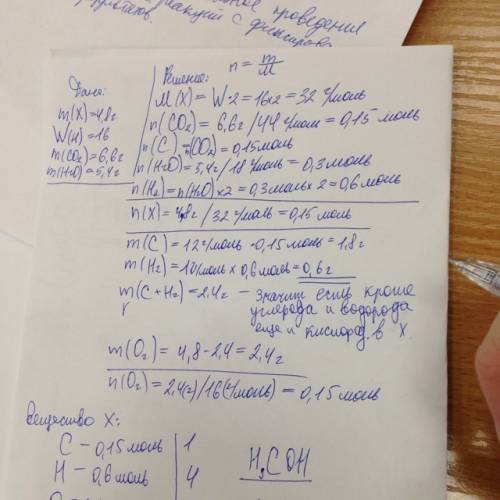 проведения
реакций с фиксиров
Дано:
m(X)=4,8г
W(H)=16
m(CO₂)=6,6г
m(H₂O)=5,4г
Решение: n = m/M
M(X) = W·2 = 16×2 = 32 г/моль
n(CO₂) = 6,6г/44 г/моль = 0,15 моль
n(C) = n(CO₂) = 0,15моль
n(H₂O) = 5,4г/18 г/моль = 0,3моль
n(H₂) = n(H₂O)×2 = 0,3моль×2 = 0,6моль
n(X) = 4,8г/32 г/моль = 0,15 моль
m(C) = 12 г/моль · 0,15 моль = 1,8г
m(H₂) = 1г/моль × 0,6моль = 0,6г
m(C+H₂) = 2,4г – значит есть кроме
углерода и водорода
еще и кислород в X.
m(O₂) = 4,8 - 2,4 = 2,4г
n(O₂) = 2,4(г)/16(г/моль) = 0,15 моль
Вещество X:
C – 0,15моль | 1
H – 0,6моль | 4
H₃COH